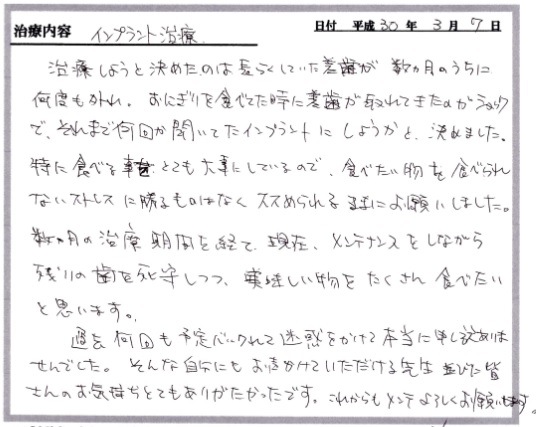 治療内容 インプラント治療 日付 平成 30 年 3 月 7 日
治療しようと決めたのは長らくしていた差歯が 数ヵ月のうちに
何度も外れ。おにぎりを食べてた時に差歯が取れてきたのがショック
で、それまで何回か聞いてたインプラントにしようかと、決めました。
特に食べる事をとても大事にしているので、食べたい物を食べられ
ないストレスに勝るものはなくススめられるままにお願いしました。
数ヵ月の治療期間を経て、現在、メンテナンスをしながら
残りの歯を死守しつつ、美味しい物をたくさん食べたい
と思います。
過去何回も予定バックれて迷惑をかけて本当に申し訳ありま
せんでした。そんな自分にもお声かけていただける先生並びに皆
さんのお気持ちとてもありがたかったです。これからもメンテよろしくお願いします。